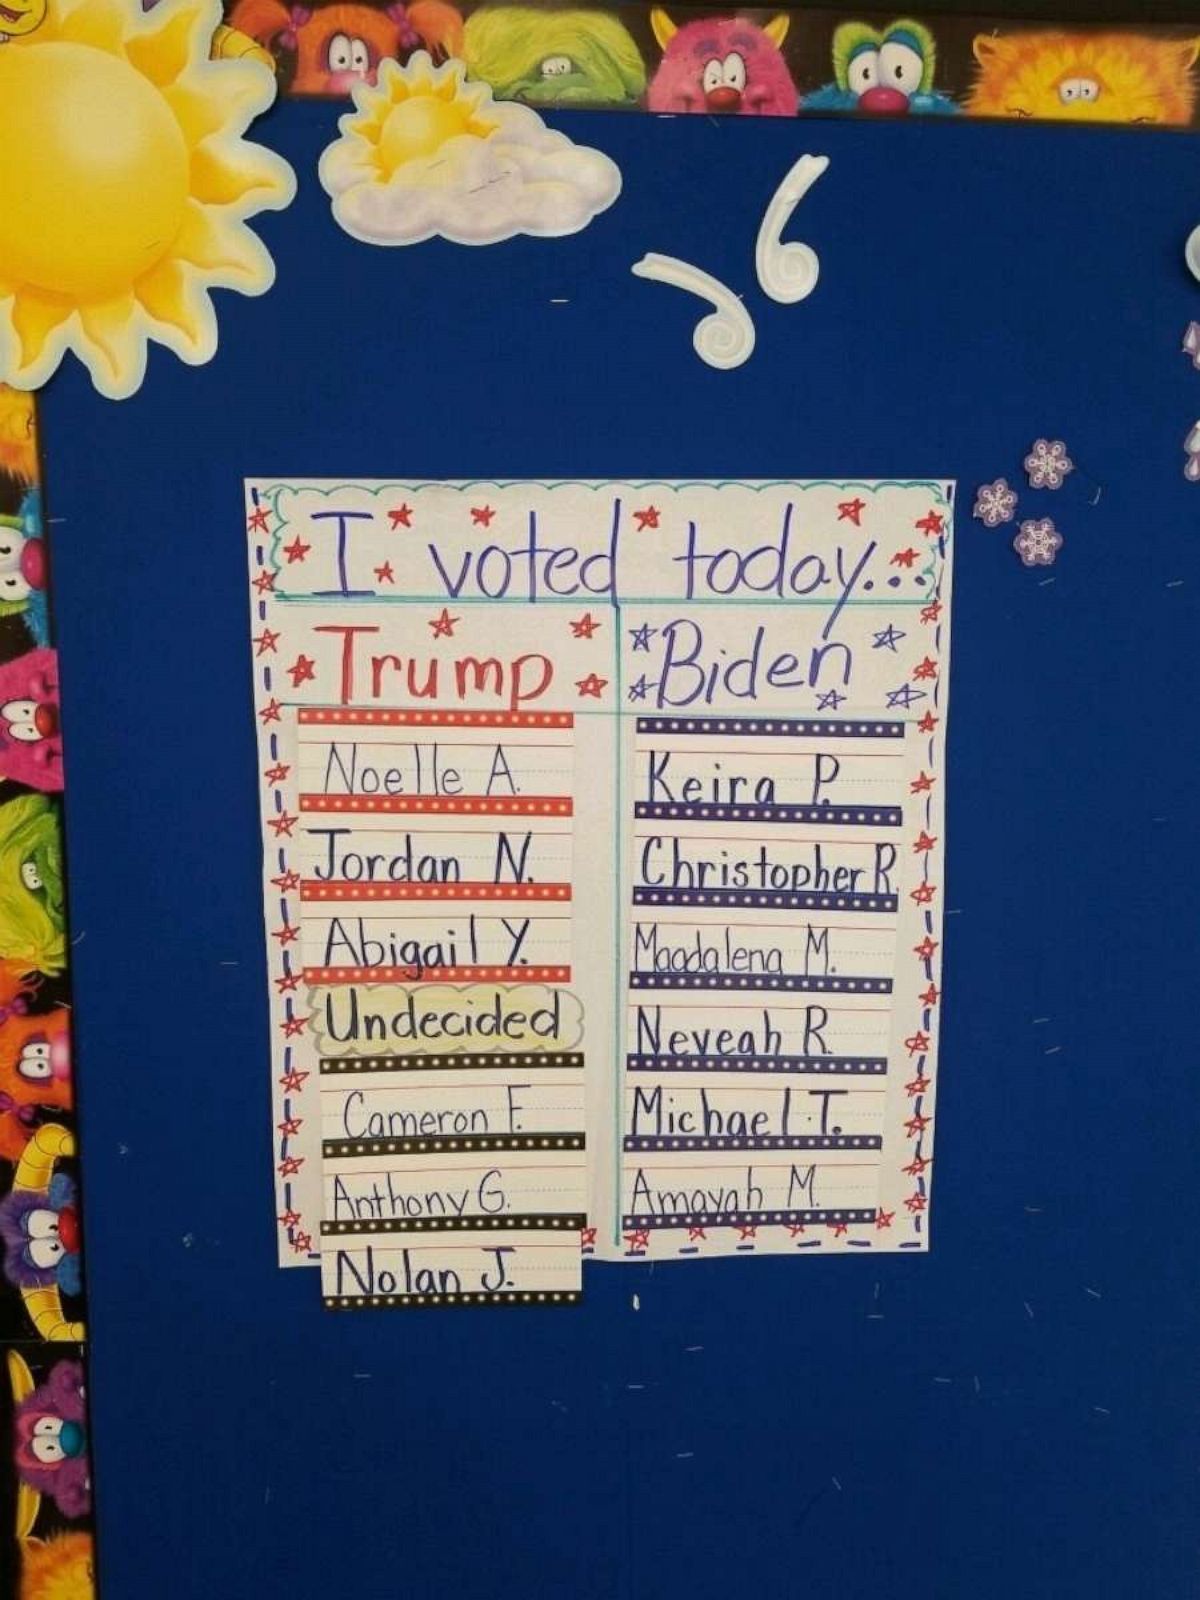 I voted today...
Trump
Noelle A.
Jordan N.
Abigail Y.
Undecided
Cameron F.
Anthony G.
Nolan J.
Biden
Keira P.
Christopher R.
Magdalena M.
Neveah R.
Michael T.
Amayah M.